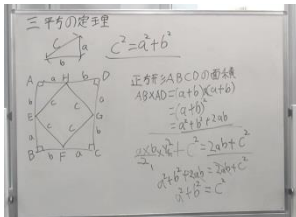 三平方の定理
c b a
c²=a²+b²
A a H b D
b c c a
E G
a c c b
B b F a C
正方形ABCDの面積
AB×AD=(a+b)(a+b)
=(a+b)²
=a²+b²+2ab
a×b×4/2+c²=2ab+c²
a²+b²+2ab=2ab+c²
a²+b²=c²